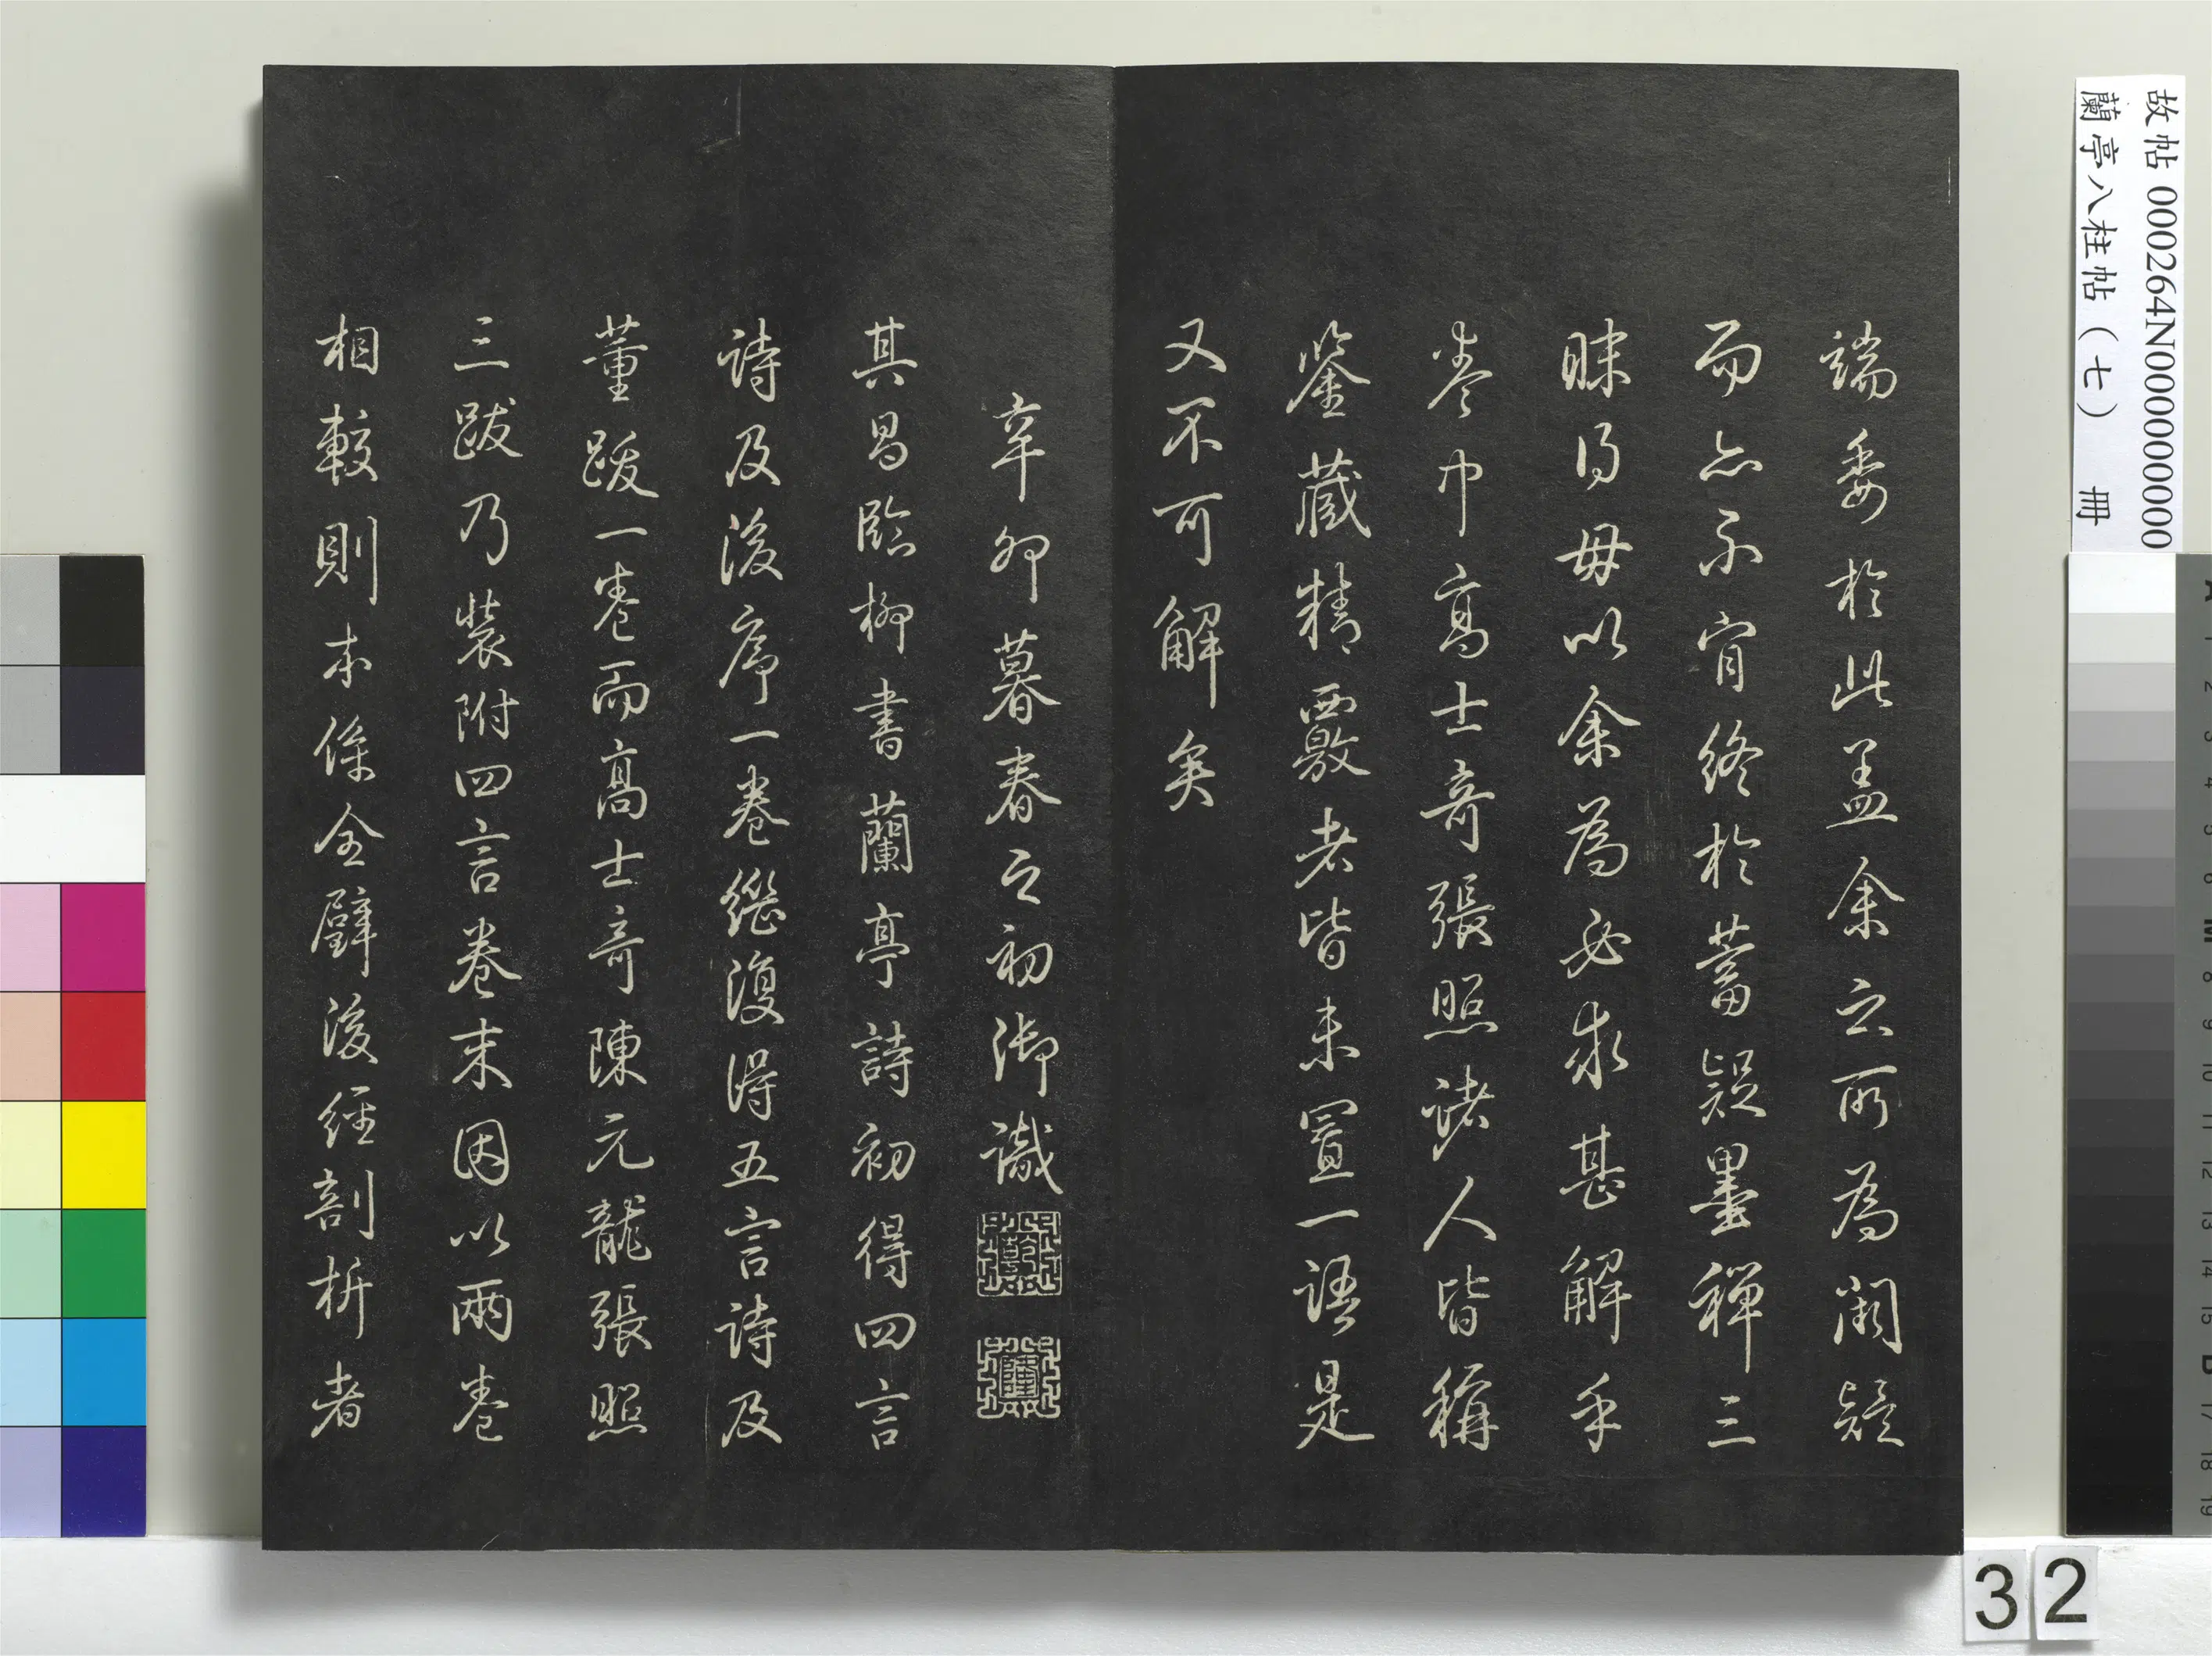 端委於此盖余之所為闕疑
而亦不肯終於蓄疑墨禪三
昧得毋以余為必求甚解乎
卷中高士奇張照諸人皆稱
鑒藏精覈者皆未置一語是
又不可解矣
辛卯暮春之初御識
其昌臨柳書蘭亭詩初得四言
詩及後序一卷繼復得五言詩及
董跋一卷而高士奇陳元龍張照
三跋乃裝附四言卷末因以兩卷
相較則本係全璧後經剖析者
故帖 000264N000000000
蘭亭八柱帖（七） 冊
32